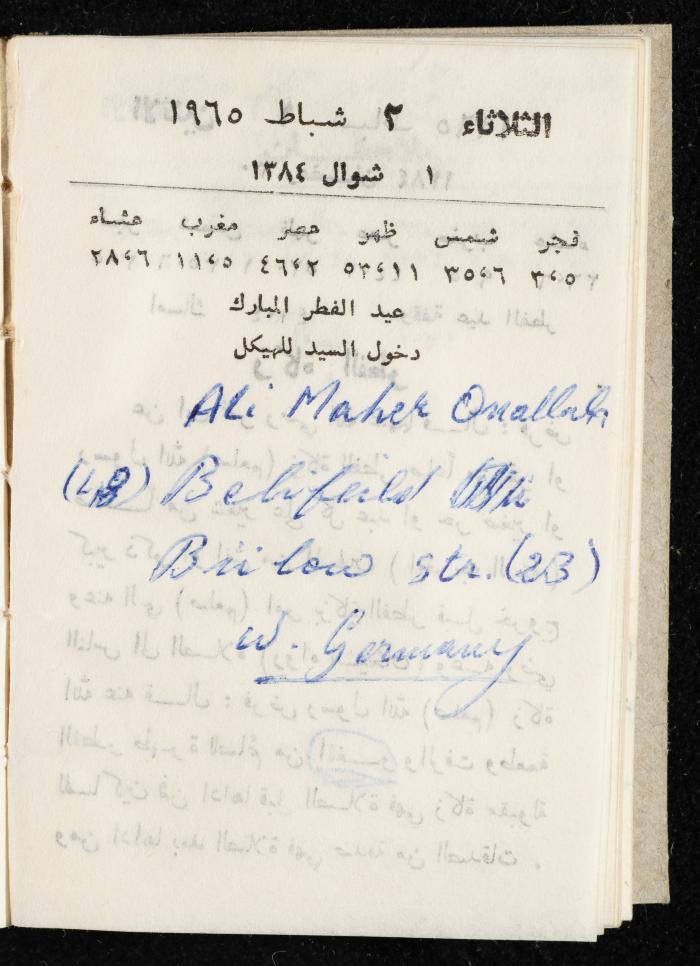 الثلاثاء ٢ شباط ١٩٦٥
١ شوال ١٣٨٤
فجر شمس ظهر عصر مغرب عشاء
٥،٣ ٦،٣٥ ١١،٥٣ ٢،٤٦ ٥،١١ ٦،٢٨
عيد الفطر المبارك
دخول السيد للهيكل
Ali Maher
(48)
Brilow str. (23)
W. Germany